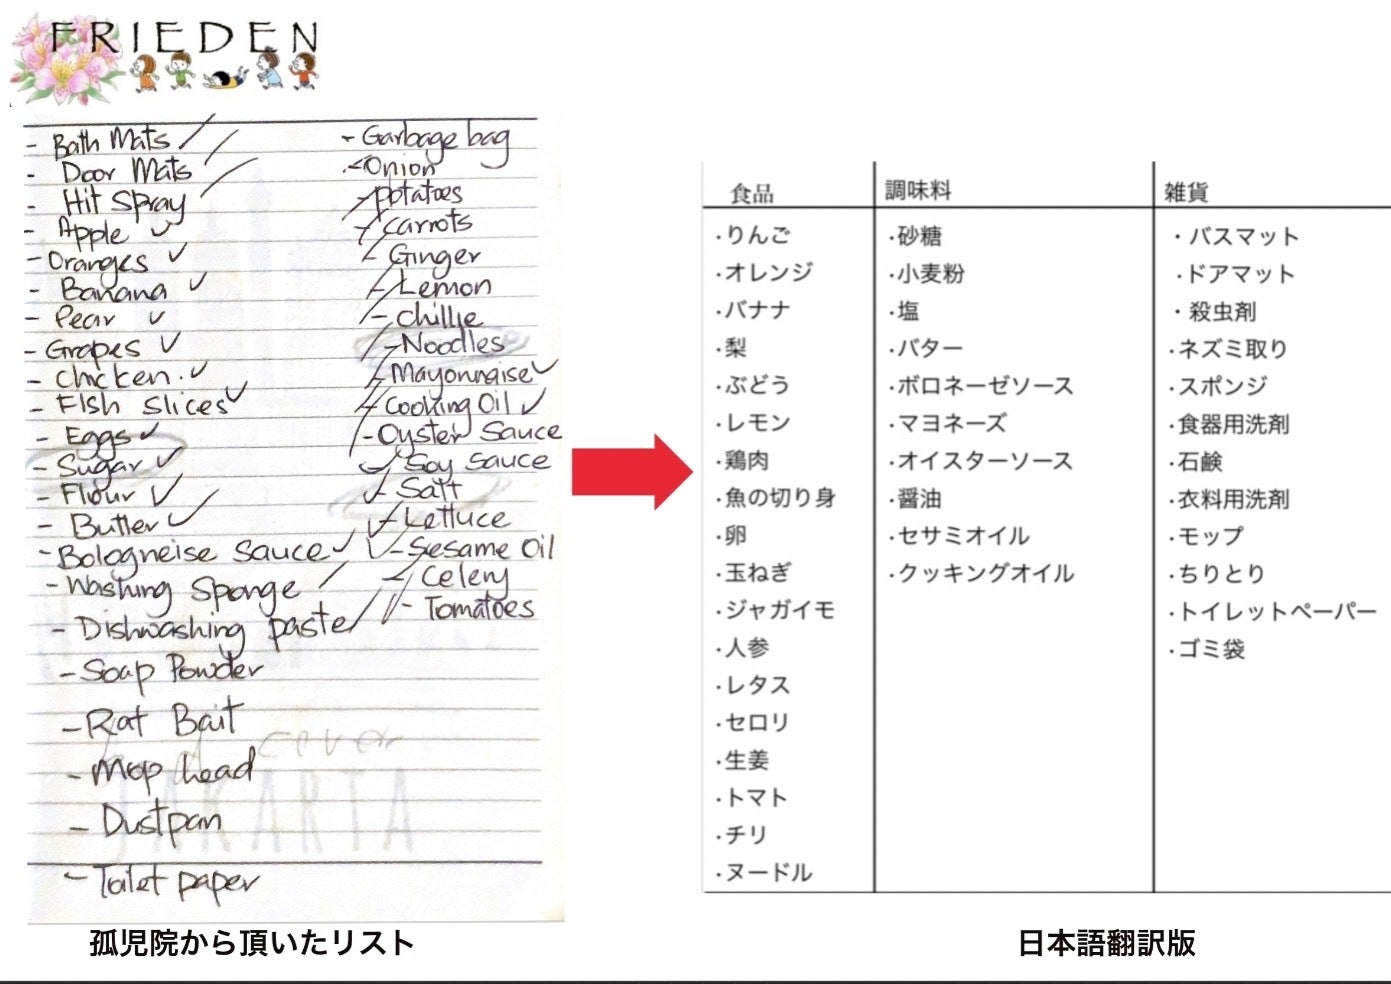 FRIEDEN
- Bath Mats
- Door Mats
- Hit Spray
- Apple
- Oranges
- Banana
- Pear
- Grapes
- Chicken.
- Fish slices
- Eggs
- Sugar
- Flour
- Butter
- Bologneise sauce
- Washing Sponge
- Dishwashing paste
- Soap Powder
- Rat Bait
- Mop head
- Dustpan
- Toilet paper
- Garbage bag
- Onion
- potatoes
- carrots
- Ginger
- Lemon
- chillie
- Noodles
- Mayonnaise
- Cooking Oil
- Oyster Sauce
- Soy Sauce
- Salt
- Lettuce
- Sesame Oil
- Celery
- Tomatoes
cover
JAKARTA
孤児院から頂いたリスト
食品
・りんご
・オレンジ
・バナナ
・梨
・ぶどう
・レモン
・鶏肉
・魚の切り身
・卵
・玉ねぎ
・ジャガイモ
・人参
・レタス
・セロリ
・生姜
・トマト
・チリ
・ヌードル
調味料
・砂糖
・小麦粉
・塩
・バター
・ボロネーゼソース
・マヨネーズ
・オイスターソース
・醤油
・セサミオイル
・クッキングオイル
雑貨
・バスマット
・ドアマット
・殺虫剤
・ネズミ取り
・スポンジ
・食器用洗剤
・石鹸
・衣料用洗剤
・モップ
・ちりとり
・トイレットペーパー
・ゴミ袋
日本語翻訳版